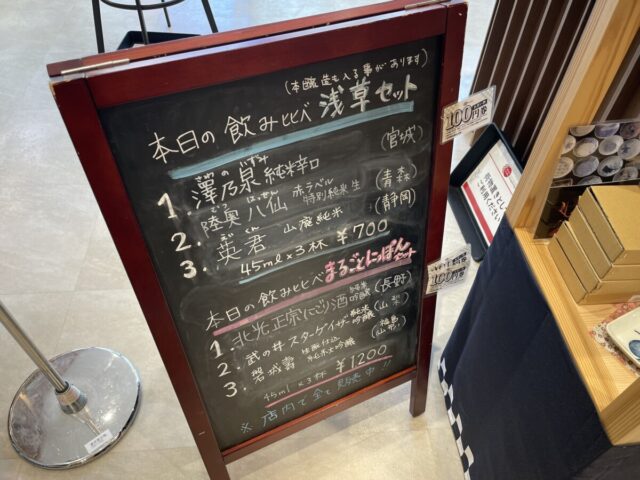 (本醸造も入る事があります)
本日の飲み比べ 浅草セット
1. 澤乃泉 純米辛口 (宮城)
2. 陸奥八仙 赤ラベル 特別純米 生 (青森)
3. 英君 山廃純米 (静岡)
45ml×3杯 ¥700
本日の飲み比べ まるごとにっぽんセット
1. 北光正宗 にごり酒 純米吟醸 (長野)
2. 武の井 スターゲイザー 純米吟醸 (山梨)
3. 磐城壽
45ml×3杯 ¥1200
※店内で全て販売中!!
100円券
100円券
ご利用ください